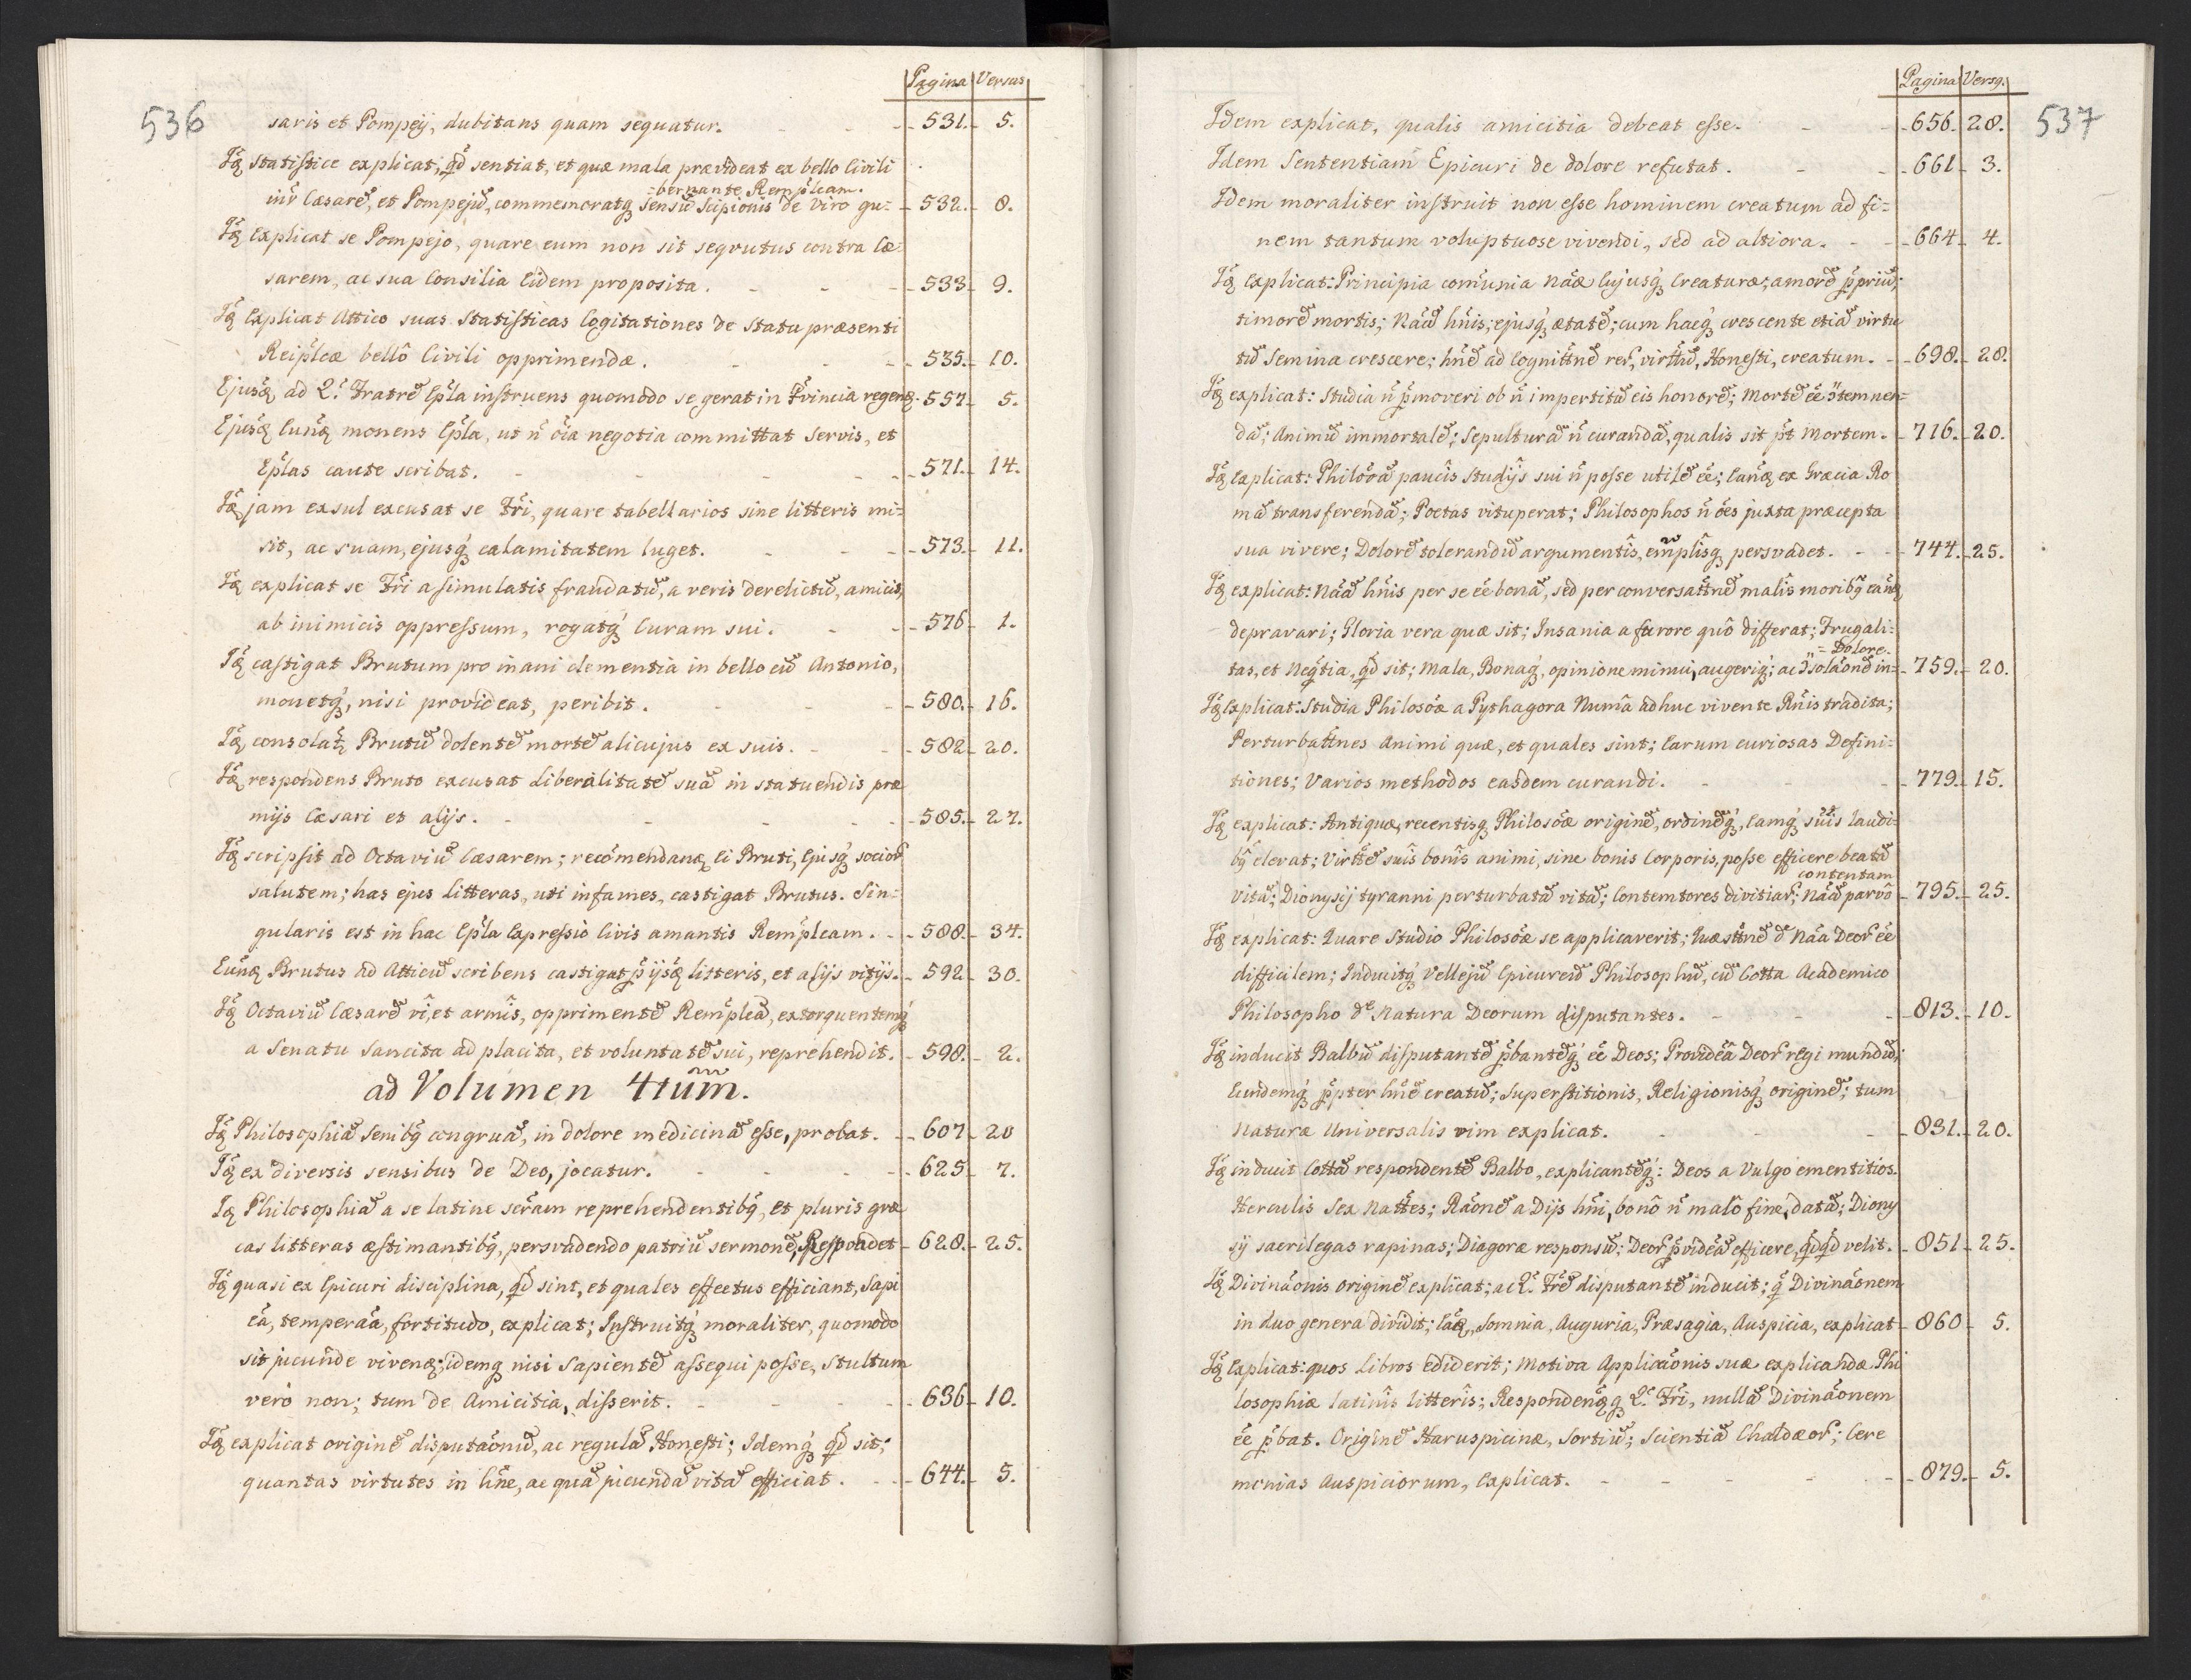 Pagina Versus
536
saris et Pompeij, dubitans quam sequatur. - 531. 5.
Idē statistice explicat, qd sentiat, et quæ mala prævideat ex bello Civili
=bernante Remplicam.
intr Cæsarē, et Pompejū, commemoratq sensū Scipionis de Viro gu= 532. 8.
Idē explicat se Pompejo, quare eum non sit sequutus contra Cæ=
sarem, ac sua Consilia Eidem proposita. - 533. 9.
Idē Explicat Attico suas Statisticas Cogitationes de Statu præsenti
Reiplcæ bellô Civili opprimendæ. - 535. 10.
Ejusdē ad Q. Fratrē Epla instruens quomodo se gerat in Pvincia regenda. 557. 5.
Ejusdē Eundē monens Epla, ut ñ oia negotia committat Servis, et
Eplas caute scribat. - 571. 14.
Idē jam exsul excusat se Fri, quare tabellarios sine litteris mi=
sit, ac suam, ejusq calamitatem luget. - 573. 11.
Idē explicat se Fri a simulatis fraudatū, a veris derelictū, amicis,
ab inimicis oppressum, rogatq Curam sui. - 576. 1.
Idē castigat Brutum pro inani clementia in bello cū Antonio,
monetq, nisi provideat, peribit. - 580. 16.
Idē consolatr Brutū dolentē mortē alicujus ex suis. - 582. 20.
Idē respondens Bruto excusat Liberalitatē suā in statuendis præ
mijs Cæsari et alijs. - 585. 27.
Idē scripsit ad Octaviū Cæsarem; recōmendans Ei Bruti, Ejusq socior
salutem; has ejus litteras, uti infames, castigat Brutus. Sin=
gularis est in hac Epla Expressio Civis amantis Remplcam. - 588. 34.
Eundē Brutus ad Atticū scribens castigat p ijsdē litteris, et alijs vitijs. 592. 30.
Idē Octaviū Cæsarē vî, et armîs, opprimentē Remplcā, extorquentemq
a Senatu Sancita ad placita, et voluntatē sui, reprehendit. - 598. 2.
ad Volumen 4tūm.
Idē Philosophiā Senibq congruā, in dolore medicinā esse, probat. - 607. 20
Idē ex diversis sensibus de Deo, jocatur. - 625. 7.
Idē Philosophiā a se latine scrām reprehendentibq, et pluris græ
cas litteras æstimantibq, persvadendo patriū sermonē, Respondet 628. 25.
Idē quasi ex Epicuri disciplina, qd sint, et quales effectus efficiant, Sapi
ēa, temperāa, fortitudo, explicat; Instruitq moraliter, quomodo
sit jucunde vivendū; idemq nisi Sapientē assequi posse, Stultum
verò non; tum de Amicitia, disserit. - 636. 10.
Idē explicat originē disputāonū, ac regulā Honesti; Idemq qd sit;
quantas virtutes in hne, ac quā jucundā vitā efficiat. - 644. 5.
Pagina Versq.
537
Idem explicat, qualis amicitia debeat esse. - 656. 28.
Idem Sententiam Epicuri de dolore refutat. - 661. 3.
Idem moraliter instruit non esse hominem creatum ad fi=
nem tantum voluptuose vivendi, sed ad altiora. - 664. 4.
Idē Explicat: Principia comunia Nāæ Cujusq Creaturæ; amorē ppriū;
timorē mortis; Nāā hnis; ejusq ætatē; cum hacq crescente etiā virtu
tū Semina crescere; hnē ad Cognittnē rer, virttū, Honesti, creatum. - 698. 28.
Idē explicat: Studia ñ pmoveri ob ñ impertitū eis honorē; Mortē ēē ɔtemnen=
dā; Animū immortalē; Sepulturā ñ curandā, qualis sit pt Mortem. - 716. 20.
Idē Explicat: Philosoā paucîs Studijs sui ñ posse utilē ēē; Eandē ex Græcia Ro
mā transferendā; Poetas vituperat; Philosophos ñ ōes juxta præcepta
sua vivere; Dolorē tolerandū argumentîs, emplîsq persvadet. - 744. 25.
Idē explicat: Nāā hnis per se ēē bonā, sed per conversattnē malîs moribq eandē
depravari; Gloria vera quæ sit; Insania a furore quô differat; Frugali=
=Dolore.
tas, et Neqtia, qd sit; Mala, Bonaq, opinione minui, augeriq; ac ɔsolāonē in= 759. 20.
Idē Explicat: Studia Philosoæ a Pythagora Numâ adhuc vivente Rnis tradita;
Perturbattnes Animi quæ, et quales sint; Earum curiosas Defini=
tiones; Varios methodos easdem curandi. - 779. 15.
Idē explicat: Antiquæ, recentisq Philosoæ originē, ordinēq, Eamq suis laudi=
bq elevat; Virttē suîs bonîs animi, sine bonis Corporis, posse efficere beatā
contentam
vitā; Dionysij tyranni perturbatā vitā; Contemtores divitiar; Nāā parvô 795. 25.
Idē explicat: Quare Studio Philosoæ se applicaverit; Quæsttnē d Nāa Deor ēē
difficilem; Inducitq Vellejū Epicureū Philosophū, cū Cotta Academico
Philosopho de Natura Deorum disputantes. - 813. 10.
Idē inducit Balbū disputantē pbantēq ēē Deos; Providēâ Deor regi mundū;
Eundemq ppter hnē creatū; Superstitionis, Religionisq originē; tum
Naturæ Universalis vim explicat. - 831. 20.
Idē inducit Cottā respondentē Balbo, explicantēq: Deos a Vulgo ementitios.
Herculis Sex Nattes; Rāonē a Dijs hni, bonô ñ malô fine, datā; Diony
sij sacrilegas rapinas; Diagoræ responsū; Deor pvidēā efficere, qdqd velit. - 851 25.
Idē Divināonis originē explicat; ac Q. Frē disputantē inducit; q Divināonem
in duo genera dividit; Eaq, Somnia, Auguria, Præsagia, Auspicia, explicat 860 5.
Idē Explicat: quos Libros ediderit; Motiva Applicāonis suæ explicandæ Phi
losophiæ latinîs litterîs; Respondensq Q. Fri, nullā Divināonem
ēē pbat. Originē Haruspicinæ, Sortiū; Scientiā Chaldæor; Cere
monias Auspiciorum, Explicat. - 879. 5.